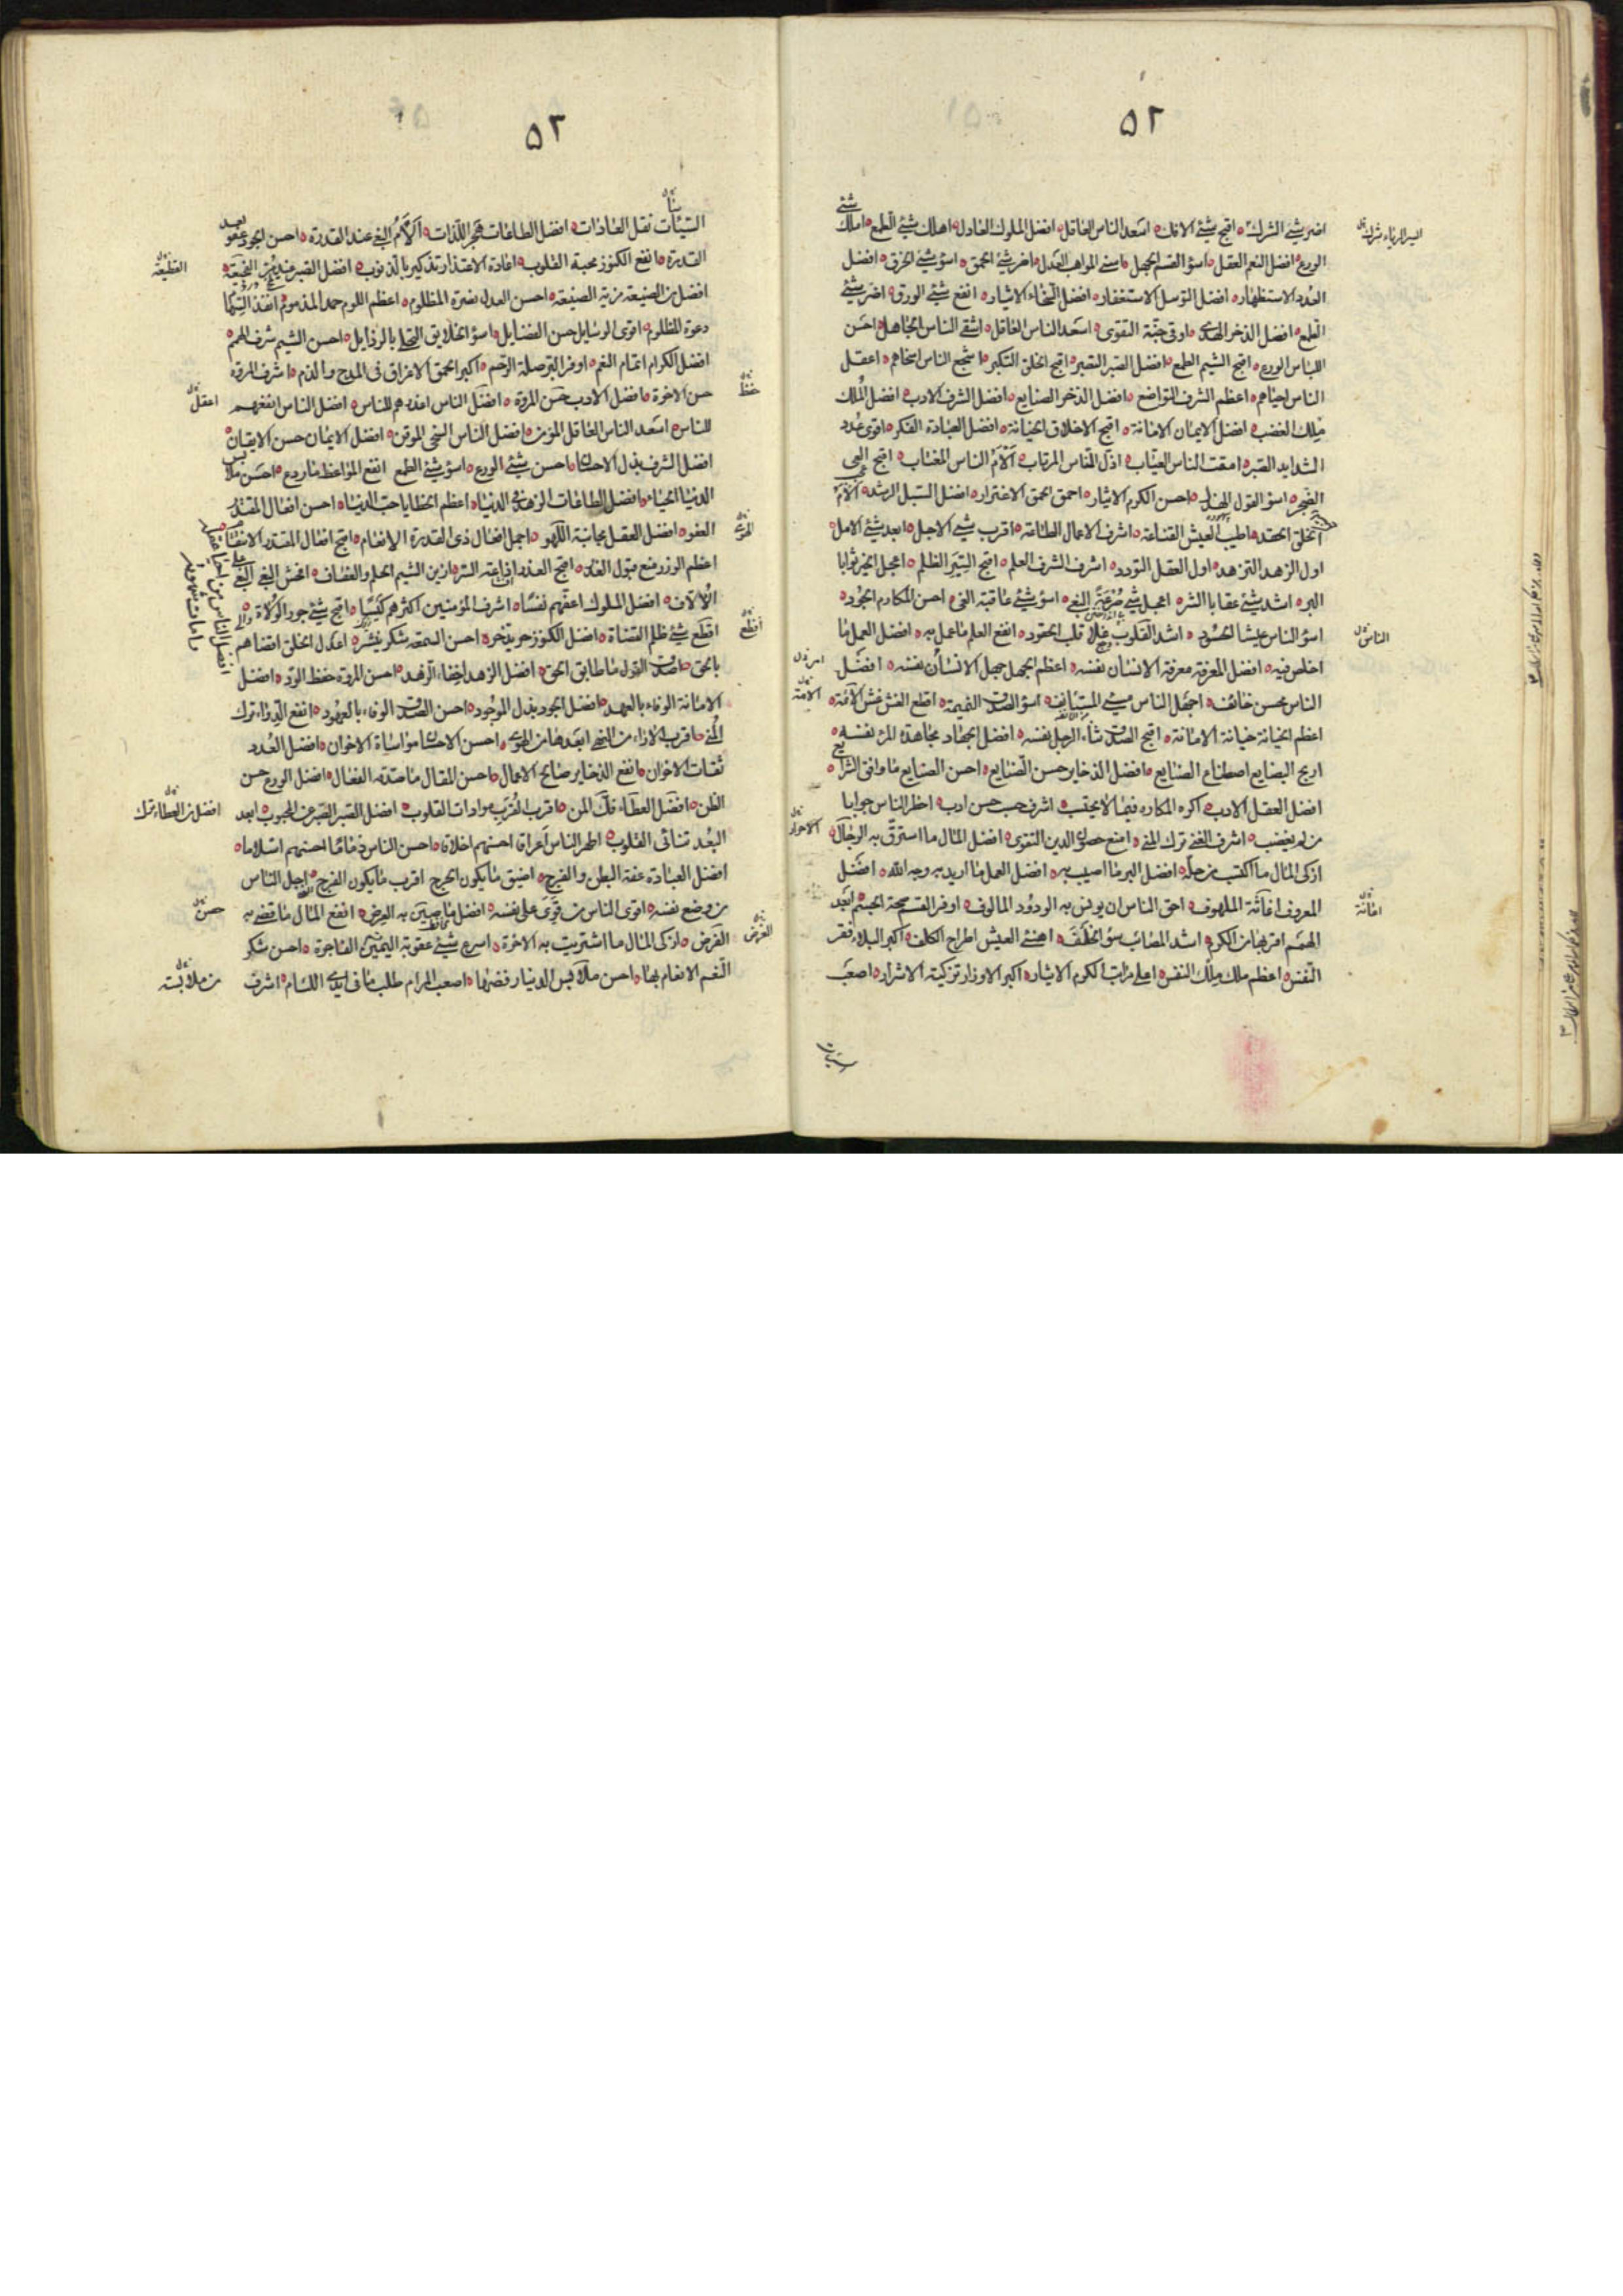 ٥٢
اضر شيئ الشرك اقبح شيئ الافك اسعد الناس العاقل افضل الملوك العادل اهلك شيئ الطمع املك شيئ
الورع افضل النعم العقل اسوء القسم الجهل اسنى المواهب العدل اضر شيئ الحمق اسوء شيئ الخرق افضل
العدد الاستظهار افضل التوسل الاستغفار افضل السخاء الايثار انفع شيئ الورق اضر شيئ
الطمع افضل الذخر الهدى اوقى جنة التقوى اسعد الناس العاقل اشقى الناس الجاهل احسن
اللباس الورع اقبح الشيم الطمع افضل الصبر التصبر اقبح الخلق التكبر اشجع الناس اسخاهم اعقل
الناس احياهم اعظم الشرف التواضع افضل الذخر الصنايع افضل الشرف الادب افضل الملك
ملك الغضب افضل الايمان الامانة اقبح الاخلاق الخيانة افضل العبادة الفكر اقوى عدد
الشدايد الصبر امقت الناس العياب اذل الناس المرتاب الأم الناس المغتاب اقبح العى
الضجر اسوء القول الهذر احسن الكرم الايثار احمق الحمق الاغترار افضل السبل الرشد الأم
الخلق الحقد اطيب العيش القناعة اشرف الاعمال الطاعة اقرب شيئ الاجل ابعد شيئ الامل
اول الزهد التزهد اول العقل التودد اشرف الشرف العلم اقبح السير الظلم اعجل الخير ثوابا
البر اشد شيئ عقابا الشر اعجل شيئ صرعة البغى اسوء شيئ عاقبة الغى احسن المكارم الجود
اسوء الناس عيشا الحسود اشد القلوب غلا قلب الحقود انفع العلم ما عمل به افضل العمل ما
اخلص فيه افضل المعرفة معرفة الانسان نفسه اعظم الجهل جهل الانسان نفسه افضل
الناس محسن خائف اجهل الناس مسيئ مستانف اسوء الصدق النميمة افظع الغش غش الائمة
اعظم الخيانة خيانة الامانة اقبح الصدق ثناء الرجل نفسه افضل الجهاد مجاهدة المرء نفسه
اربح البضايع اصطناع الصنايع افضل الذخاير حسن الصنايع احسن الصنايع ما وافق الشرايع
افضل العقل الادب اكره المكاره فيما لا يحتسب اشرف حسب حسن ادب احظر الناس جوابا
من لم يغضب اشرف الغنى ترك المنى امنع حصون الدين التقوى افضل المال ما استرق به الرجال
ازكى المال ما اكتسب من حله افضل البر ما اصيب به افضل العمل ما اريد به وجه الله افضل
المعروف اغاثة الملهوف احق الناس ان يونس به الودود المالوف اوفر القسم صحة الجسم ابعد
الهمم اقربها من الكرم اشد المصائب سوء الخلف اهنئ العيش اطراح الكلف اكبر البلاء فقر
النفس اعظم ملك ملك النفس اعلى مراتب الكرم الايثار اكبر الاوزار تزكية الاشرار اصعب
الناس
اغاثة
٥٢
السيئات نقل العادات افضل الطاعات هجر اللذات الأم البغى عند القدرة احسن الجود عفو بعد
القدرة انفع الكنوز محبة القلوب اعادة الاعتذار تذكير بالذنوب افضل الصبر عند
افضل من الصنيعة مزية الصنيعة احسن العدل نصرة المظلوم اعظم اللوم حمد المذموم انفذ السهام
دعوة المظلوم اقوى الوسايل حسن الفضايل اسوء الخلايق التحلى بالرذايل احسن الشيم شرف الهمم
افضل الكرام اتمام النعم اوفر البر صلة الرحم اكبر الحمق الاغراق فى المدح والذم اشرف المروة
حسن الاخوة افضل الادب حسن المروة افضل الناس اعذرهم للناس افضل الناس انفعهم
للناس اسعد الناس العاقل المؤمن افضل الناس السخى الموقن افضل الايمان حسن الايقان
افضل الشرف بذل الاحسان احسن شيئ الورع اسوء شيئ الطمع انفع المواعظ ما ردع احسن ملابس
الدنيا الحياء افضل الطاعات الزهد فى الدنيا اعظم الخطايا حب الدنيا احسن افعال المقتدر
العفو افضل العقل مجانبة اللهو اجمل افعال ذى القدرة الانعام اقبح افعال المقتدر الانتقام
اعظم الوزر منع قبول العذر اقبح الغدر اذاعة السر ازين الشيم الحلم والعفاف افحش البغى البغى على
الألاف افضل الملوك اعفهم نفسا اشرف المؤمنين اكثرهم كيسا اقبح شيئ جور الولاة
افظع شيئ ظلم القضاة افضل الكنوز حر يدخر احسن السمعة شكر ينشر اعدل الخلق اقضاهم
بالحق اصدق القول ما طابق الحق افضل الزهد اخفاء الزهد احسن المروة حفظ الود افضل
الامانة الوفاء بالعهد افضل الجود بذل الموجود احسن الصدق الوفاء بالعهود انفع الدواء ترك
المنى اقرب الاراء من النهى ابعدها من الهوى احسن الاحسان مواساة الاخوان افضل العدد
ثقات الاخوان انفع الذخاير صالح الاعمال احسن المقال ما صدقه الفعال افضل الورع حسن
الظن افضل العطاء فك المن اقرب القرب مودات القلوب افضل الصبر الصبر عن المحبوب ابعد
البعد تنائى القلوب اطهر الناس اعراقا احسنهم اخلاقا احسن الناس ذماما احسنهم اسلاما
افضل العبادة عفة البطن والفرج اضيق ما يكون الحرج اقرب ما يكون الفرج اجل الناس
من وضع نفسه اقوى الناس من قوى على نفسه افضل ما صين به العرض انفع المال ما قضى به
الفرض ازكى المال ما اشتريت به الاخرة اسرع شيئ عقوبة اليمين الفاجرة احسن شكر
النعم الانعام بها احسن ملابس الدنيا رفضها اصعب المرام طلب ما فى ايدى اللئام اشرف
القطيعة
حفظ
اعقل
المرء
افظع
افضل من العطاء ترك
حسن
من ملابسته